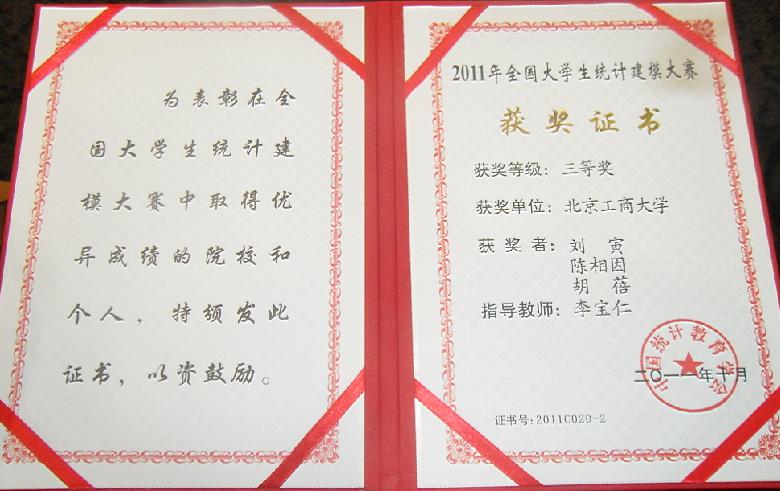 为表彰在全
国大学生统计建
模大赛中取得优
异成绩的院校和
个人，特颁发此
证书，以资鼓励。
2011年全国大学生统计建模大赛
获奖证书
获奖等级：三等奖
获奖单位：北京工商大学
获 奖 者：刘 寅
陈相因
胡 蓓
指导教师：李宝仁
中国统计教育学会
二〇一一年十月
证书号：2011C020-2